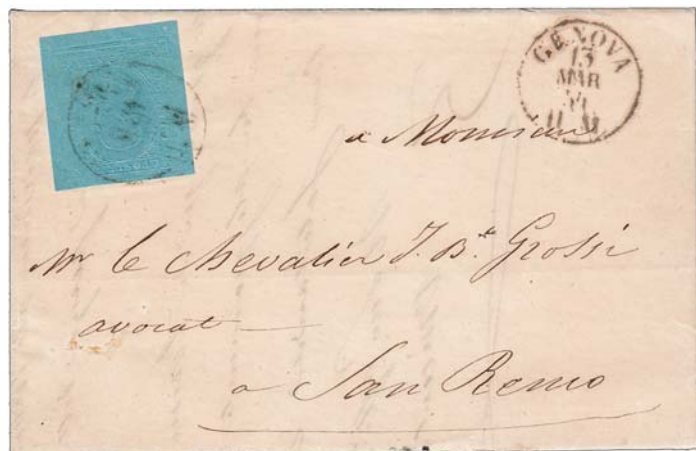 GENOVA
13
MAR
a Monsieur
Mr le Chevalier J. Bte Grossi
avocat
a San Remo